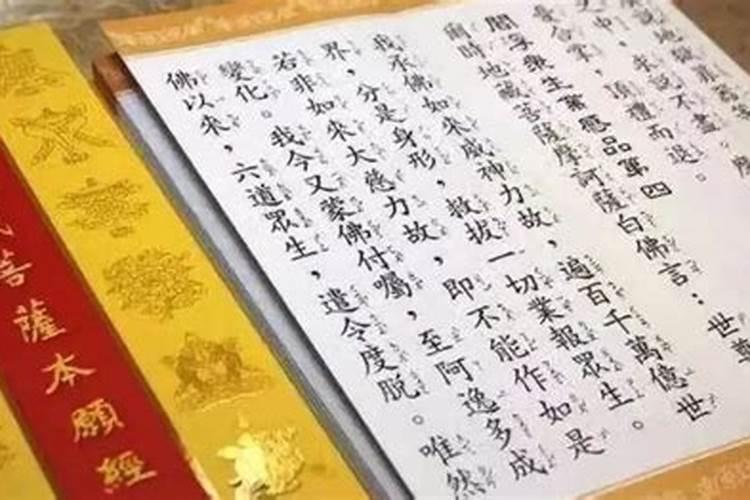 說地獄罪器等
之中，求說不盡。摩
憂合掌，頂禮而退。
閻浮眾生業感品第四
爾時地藏菩薩摩訶薩白佛言：世尊
我承佛如來威神力故，遍百千萬億世
界，分是身形，救拔一切業報眾生。
若非如來大慈力故，即不能作如是
變化。我今又蒙佛付囑，至阿逸多成
佛以來，六道眾生，遣令度脫。唯然
菩薩本願經